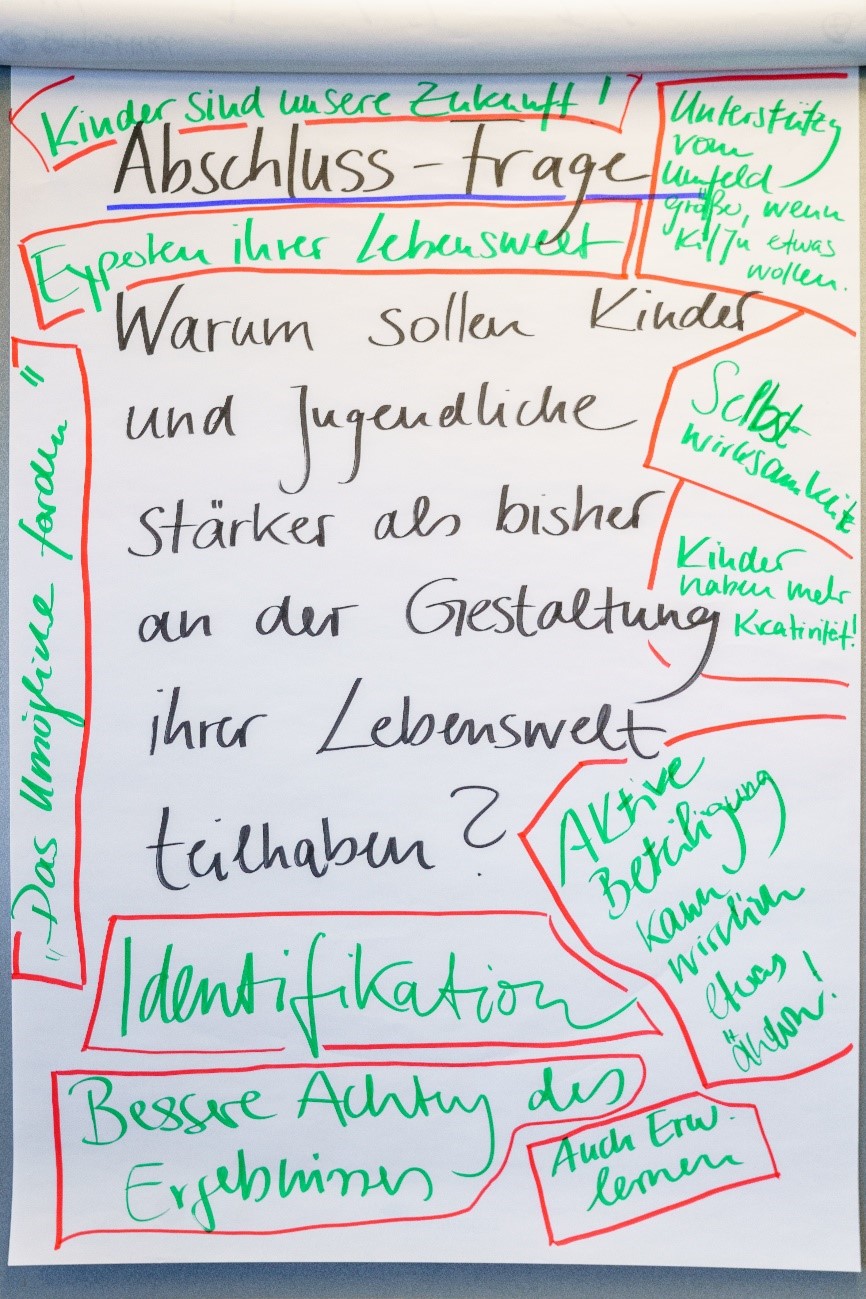 Kinder sind unsere Zukunft!
Abschluss-Frage
Unterstützg
vom
Umfeld
größer, wenn
Ki/Ju etwas
wollen.
Experten ihrer Lebenswelt
Warum sollen Kinder
und Jugendliche
stärker als bisher
an der Gestaltung
ihrer Lebenswelt
teilhaben?
"Das Unmögliche fordern"
Selbst-
wirksamkeit
Kinder
haben mehr
Kreativität!
Aktive
Beteiligung
kann
wirklich
etwas
ändern!
Identifikation
Bessere Achtung des
Ergebnisses
Auch Erw.
lernen